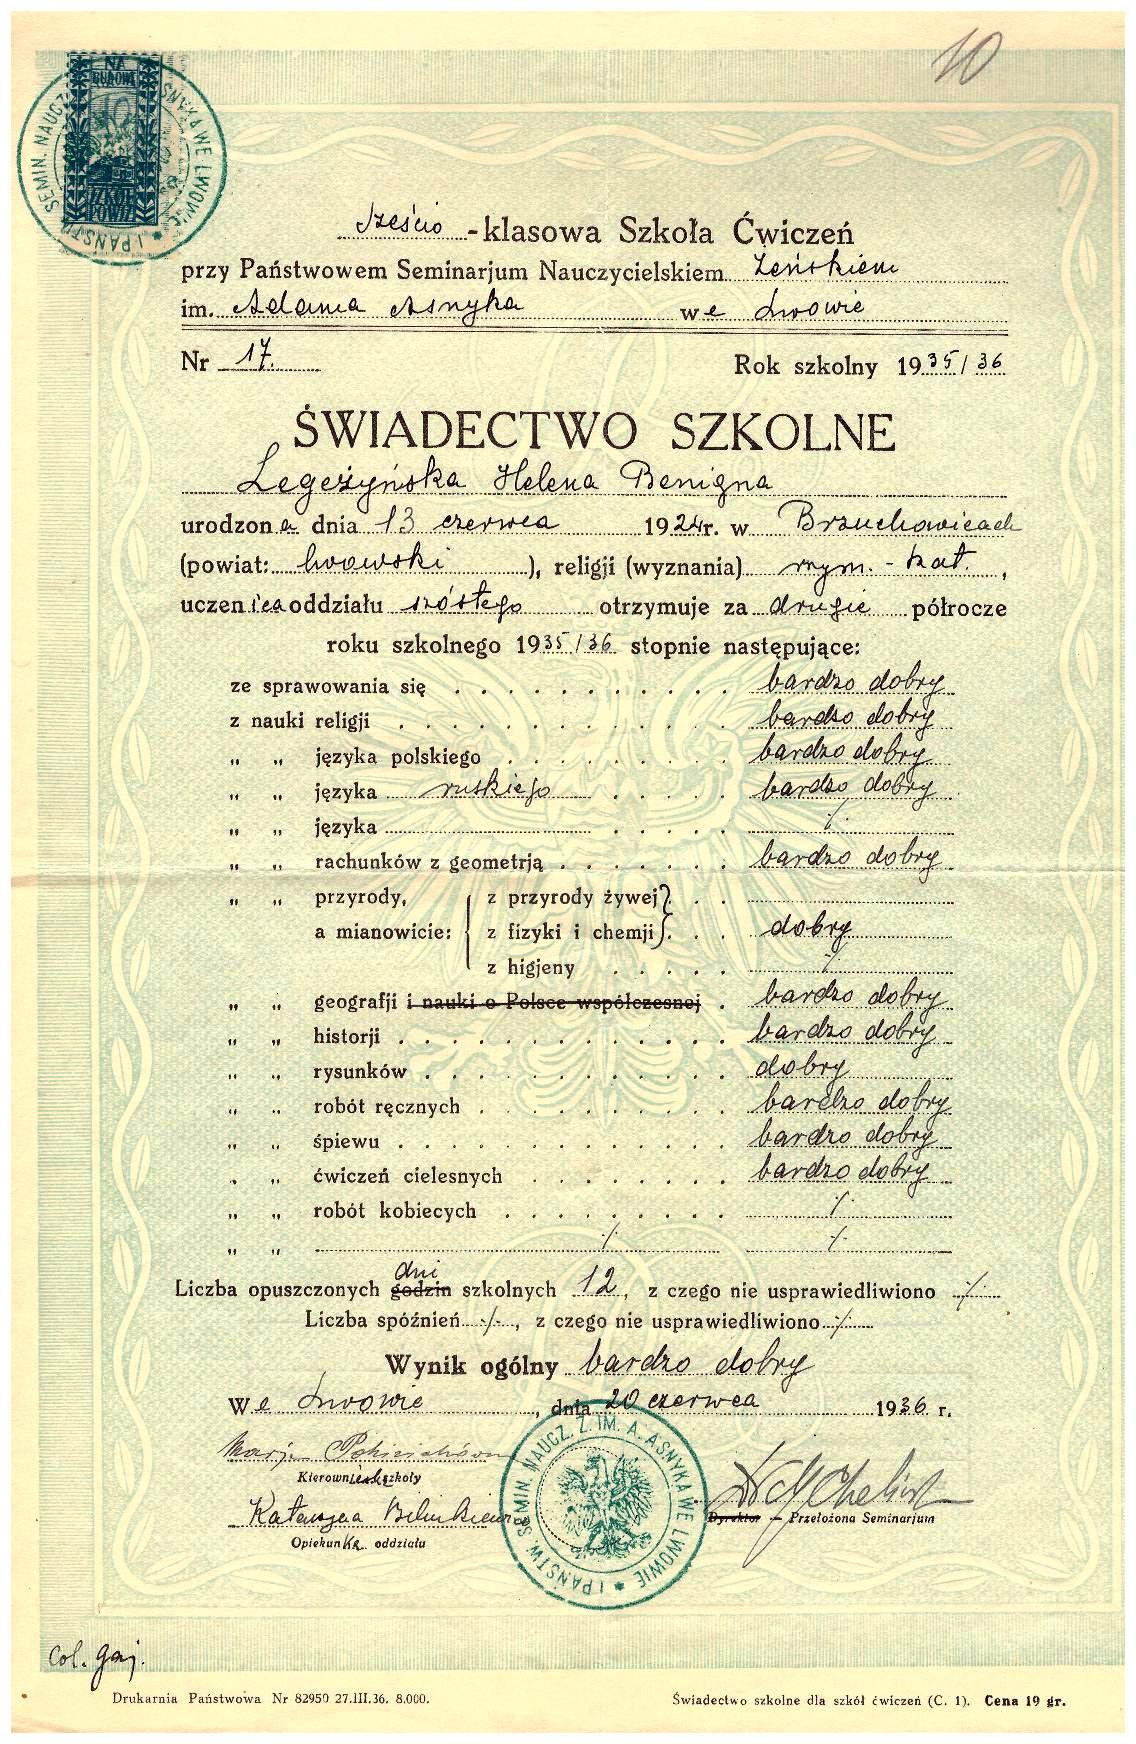 10
NA BUDOWĘ
10
SZKÓŁ POWSZ.
I PAŃSTW. SEMIN. NAUCZ. Ż. IM. A. ASNYKA WE LWOWIE
Sześcio-klasowa Szkoła Ćwiczeń
przy Państwowem Seminarjum Nauczycielskiem Żeńskiem
im. Adama Asnyka we Lwowie
Nr 17. Rok szkolny 1935/36
ŚWIADECTWO SZKOLNE
Legeżyńska Helena Benigna
urodzona dnia 13 czerwca 1924r. w Brzuchowicach
(powiat: lwowski), religji (wyznania) rzym.-kat.,
uczenica oddziału szóstego otrzymuje za drugie półrocze
roku szkolnego 1935/36 stopnie następujące:
ze sprawowania się . . . . . . . . . . . bardzo dobry
z nauki religji . . . . . . . . . . . . . bardzo dobry
„ „ języka polskiego . . . . . . . . . bardzo dobry
„ „ języka ruskiego . . . . . bardzo dobry
„ „ języka . . . . . ·/·
„ „ rachunków z geometrją . . . . . . . bardzo dobry
„ „ przyrody, z przyrody żywej . .
a mianowicie: z fizyki i chemji . . . dobry
z higjeny . . . . . ·/·
„ „ geografji i nauki o Polsce współczesnej . bardzo dobry
„ „ historji . . . . . . . . . . . . . bardzo dobry
„ „ rysunków . . . . . . . . . . . . dobry
„ „ robót ręcznych . . . . . . . . . . bardzo dobry
„ „ śpiewu . . . . . . . . . . . . . bardzo dobry
„ „ ćwiczeń cielesnych . . . . . . . . bardzo dobry
„ „ robót kobiecych . . . . . . . . . ·/·
„ „ ·/· ·/·
dni
Liczba opuszczonych godzin szkolnych 12, z czego nie usprawiedliwiono ·/·
Liczba spóźnień ·/·, z czego nie usprawiedliwiono ·/·
Wynik ogólny bardzo dobry
We Lwowie, dnia 20 czerwca 1936 r.
Marja
Kierowniczka szkoły
Katarzyna
Opiekunka oddziału
Dyrektor — Przełożona Seminarjum
I PAŃSTW. SEMIN. NAUCZ. Ż. IM. A. ASNYKA WE LWOWIE
Col. gaj.
Drukarnia Państwowa Nr 82950 27.III.36. 8.000.
Świadectwo szkolne dla szkół ćwiczeń (C. 1). Cena 19 gr.